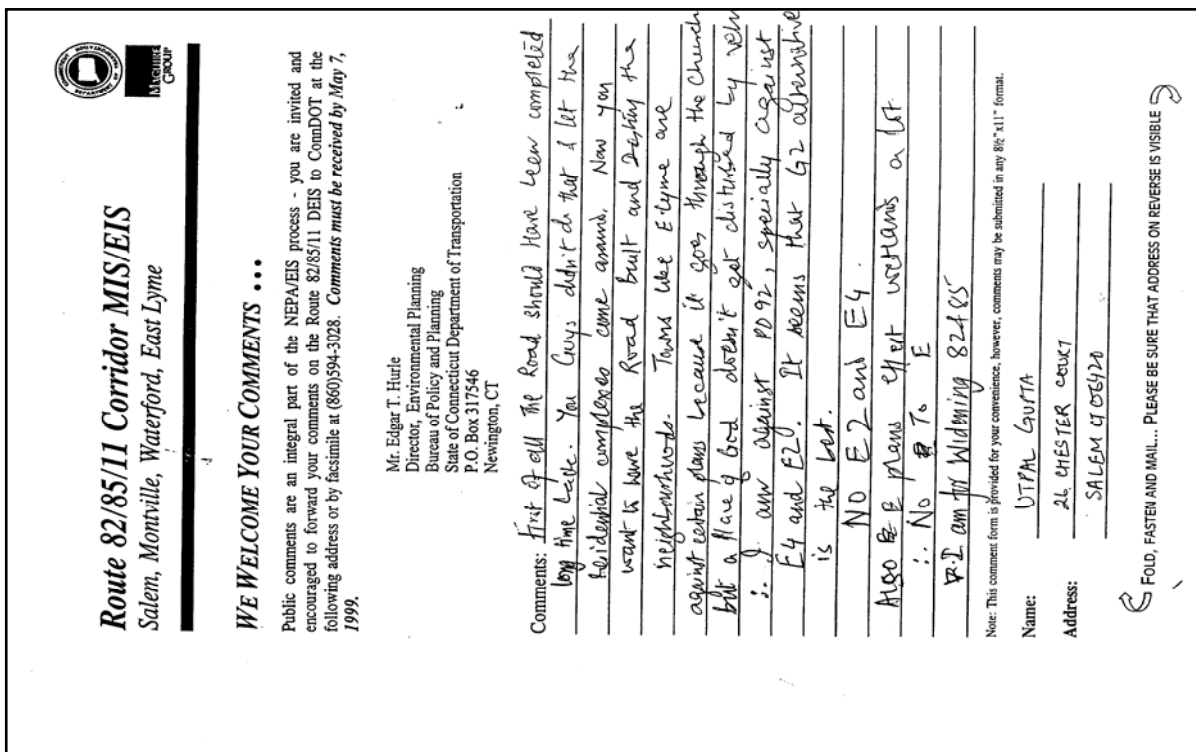 Route 82/85/11 Corridor MIS/EIS
Salem, Montville, Waterford, East Lyme
MAGUIRE
GROUP
WE WELCOME YOUR COMMENTS ...
Public comments are an integral part of the NEPA/EIS process - you are invited and
encouraged to forward your comments on the Route 82/85/11 DEIS to ConnDOT at the
following address or by facsimile at (860)594-3028. Comments must be received by May 7,
1999.
Mr. Edgar T. Hurle
Director, Environmental Planning
Bureau of Policy and Planning
State of Connecticut Department of Transportation
P.O. Box 317546
Newington, CT
Comments: First of all the Road should have been completed
long time back. You Guys didn't do that & let the
residential complexes come around. Now you
want to have the Road built and destroy the
neighbourhoods. Towns like E. Lyme are
against certain plans because it goes through the Church
but a place of God doesn't get disturbed by
∴ I am against PD92, specially against
E4 and E2. It seems that G2 alternative
is the best.
NO E2 and E4.
Also E plans effect wetlands a lot
∴ No To E
I am for Widening 82&85
Note: This comment form is provided for your convenience, however, comments may be submitted in any 8½"x11" format.
Name: UTPAL GUPTA
Address: 26 CHESTER COURT
SALEM CT 06420
FOLD, FASTEN AND MAIL... PLEASE BE SURE THAT ADDRESS ON REVERSE IS VISIBLE